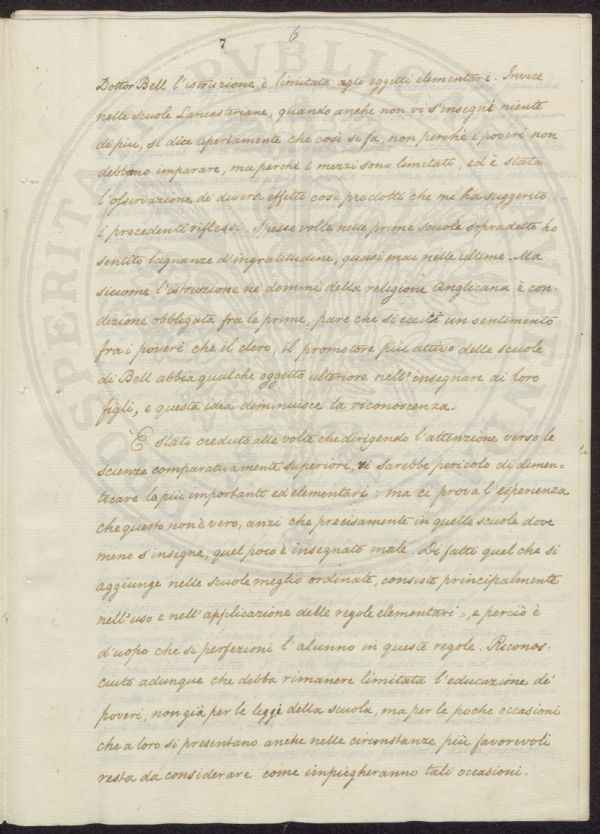 7 6
Dottor Bell l'istruzione è limitata agli oggetti elementari. Invece
nelle scuole Lancasteriane, quando anche non vi s'insegni niente
di più, si dice apertamente che così si fa, non perchè i poveri non
debbano imparare, ma perchè i mezzi sono limitati, ed è stata
l'osservazione de' diversi effetti così prodotti che mi ha suggerito
i precedenti riflessi. Spesse volte nelle prime scuole sopradette ho
sentito lagnanze d'ingratitudine, quasi mai nelle ultime. Ma
siccome l'istruzione ne' dommi della religione Anglicana è con-
dizione obbligata fra le prime, pare che si ecciti un sentimento
fra i poveri che il clero, il promotore più attivo delle scuole
di Bell abbia qualche oggetto ulteriore nell'insegnare ai loro
figli, e questa idea diminuisce la riconoscenza.
È stato creduto alle volte che dirigendo l'attenzione verso le
scienze comparativamente superiori, vi sarebbe pericolo di dimen-
ticare le più importanti ed elementari; ma ci prova l'esperienza
che questo non è vero, anzi che precisamente in quelle scuole dove
meno s'insegna, quel poco è insegnato male. Di fatti quel che si
aggiunge nelle scuole meglio ordinate, consiste principalmente
nell'uso e nell'applicazione delle regole elementari, e perciò è
d'uopo che si perfezioni l'alunno in queste regole. Riconos-
ciuto adunque che debba rimanere limitata l'educazione de'
poveri, non già per le leggi della scuola, ma per le poche occasioni
che a loro si presentano anche nelle circonstanze più favorevoli
resta da considerare come impiegheranno tali occasioni.